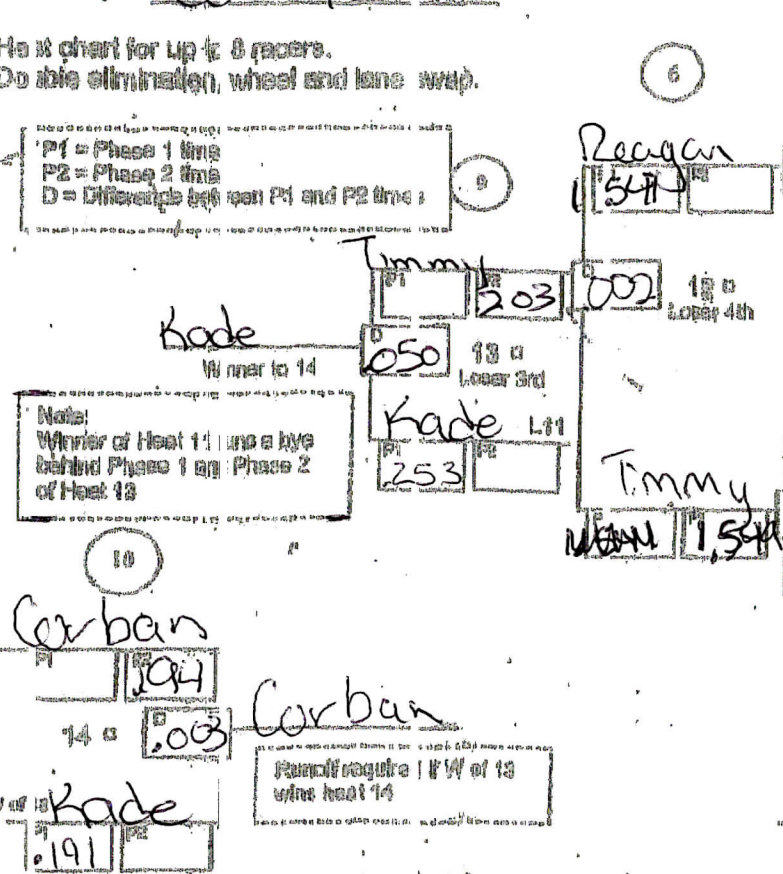 Heat chart for up to 8 racers.
Double elimination, wheel and lane swap.
6
P1 = Phase 1 time
P2 = Phase 2 time
D = Difference between P1 and P2 times
9
Reagan
P1
P2
Timmy
P1
P2
.203
D
.002
15
Loser 4th
Kade
Winner to 14
D
.050
13
Loser 3rd
Kade L11
P1
.253
P2
Note:
Winner of Heat 11 runs a bye
behind Phase 1 and Phase 2
of Heat 13
Timmy
10
Corban
P1
P2
.194
14
D
.003
Corban
Runoff required if W of 13
wins heat 14
Kade
P1
.191
P2